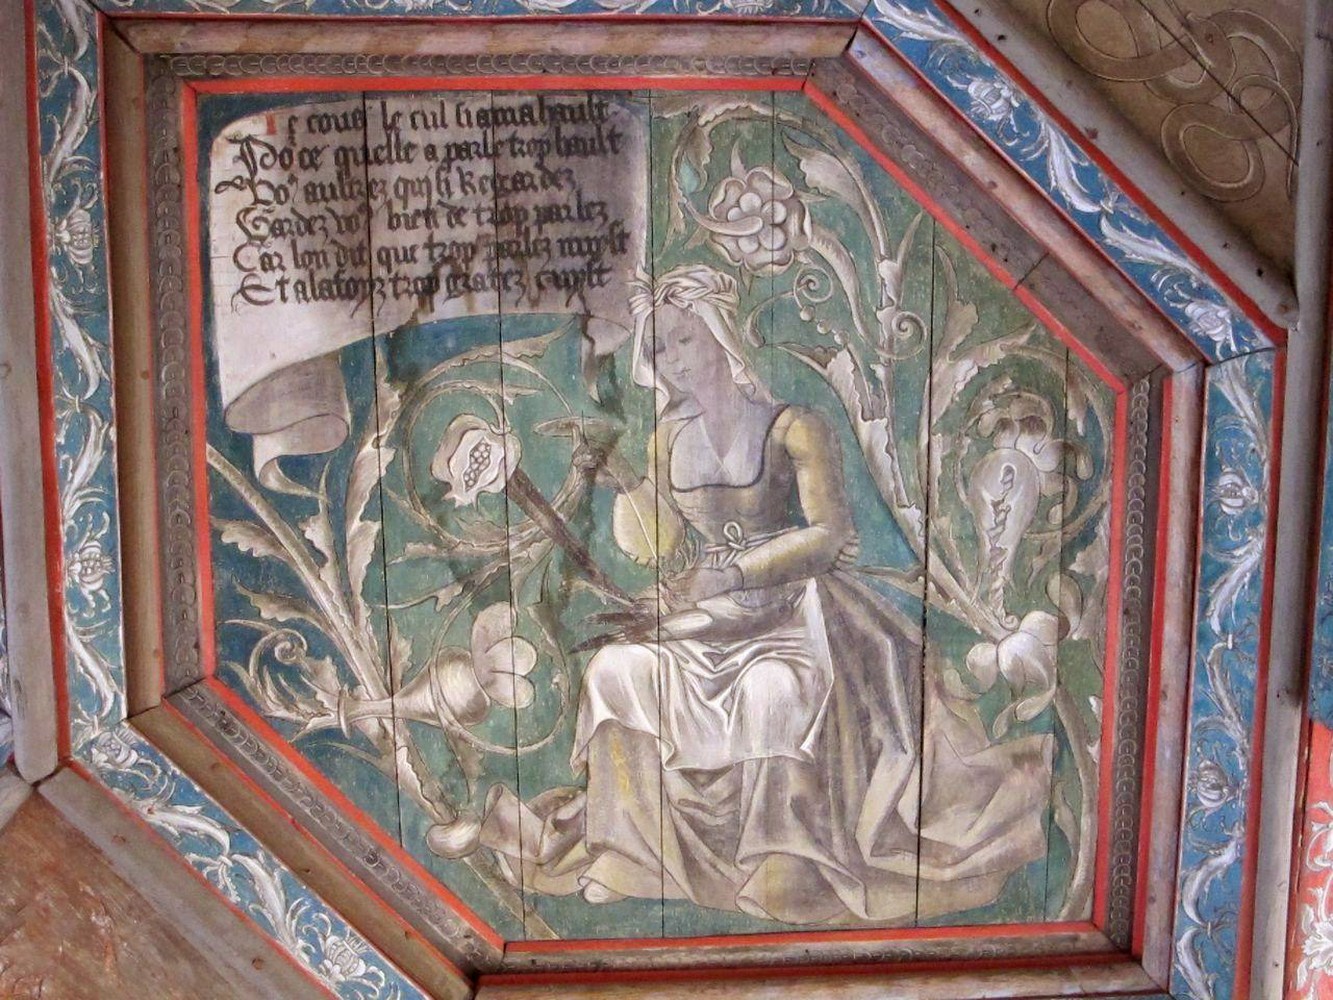 Je cous le cul si a mahault
Poce quelle a parle trop hault
Vo9 aultrez qui si Regardez
Gardez vo9 bien de trop parlez
Car lon dit que trop parlez nuyst
Et a la foyz trop gratez cuyst